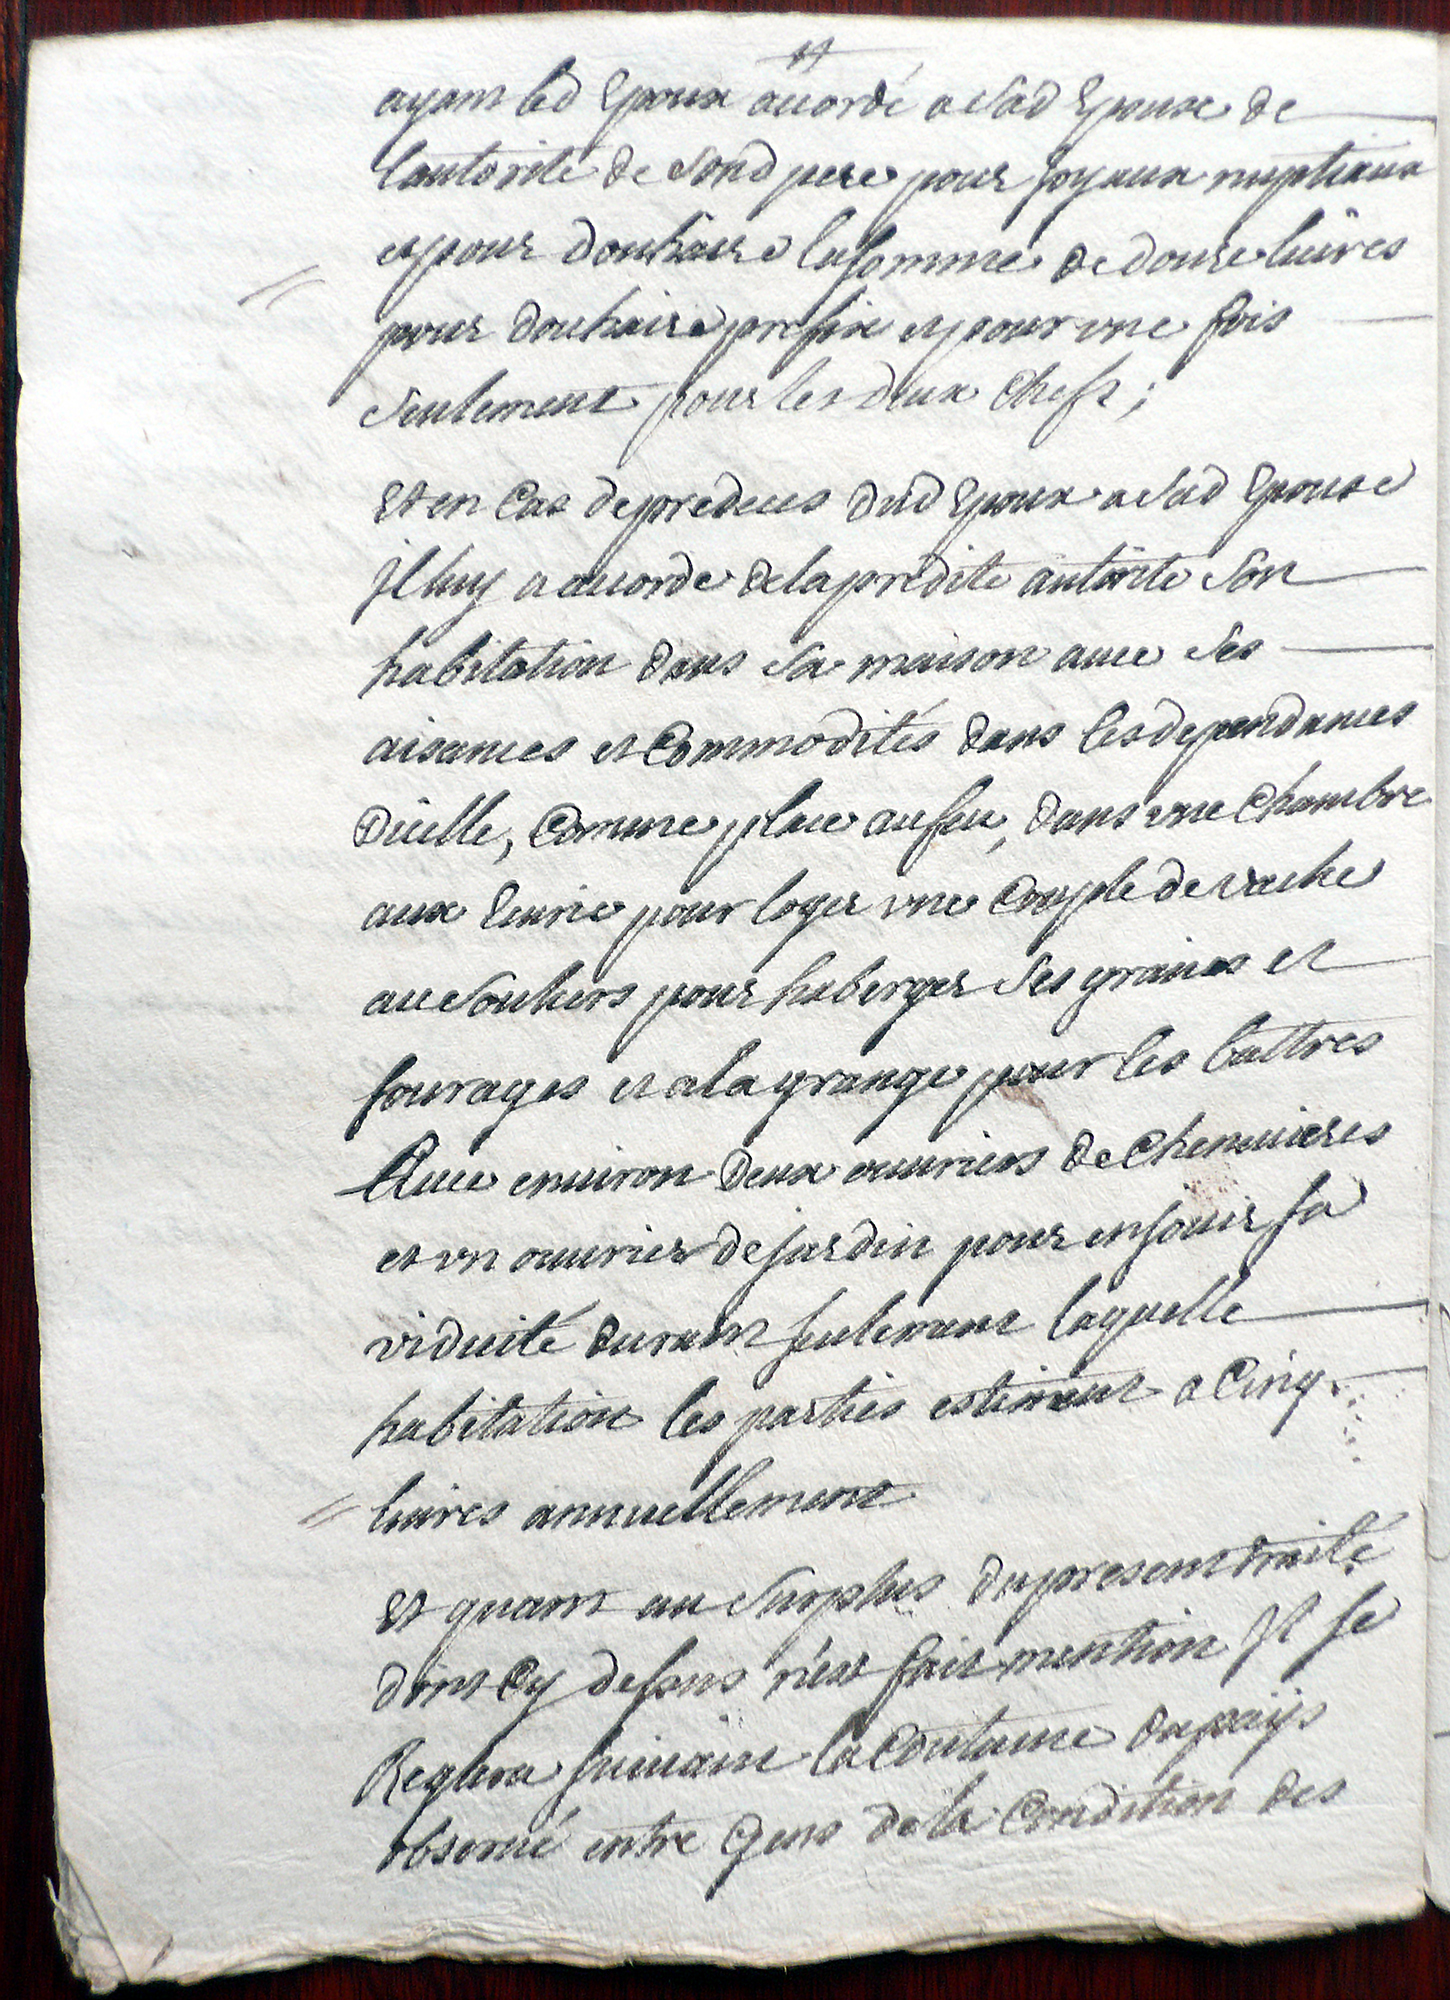 ayant led Epoux accordé a Sad Epouse de
lautorité de Sond pere pour joyaux nuptiaux
et pour douhaire la somme de douze livres
pour douhaire prefix et pour une fois
Seulement pour les deux Chefs ;
Et en Cas de predeces dud Epoux a Sad Epouse
jl luy a accordé de la predite autorité Son
habitation dans Sa maison avec Ses
aisances et Commodités dans les dependances
Dicelle, Comme place au feu, dans une Chambre
aux Ecurie pour loger une Couple de vache
au Soutiers pour heberger Ses graines et
fourages et a la grange pour les battres
Avec environ Deux ouvriers de Chenevieres
et un ouvrier de jardin pour en jouir sa
viduité durant seulement laquelle
habitation les parties estiment a Cinq
livres annuellement
Et quant au Surplus du present traité
dont Cy dessus n'est fait mention Jl se
Reglera suivant la Coutume du païs
observé entre Gens de la Condition des